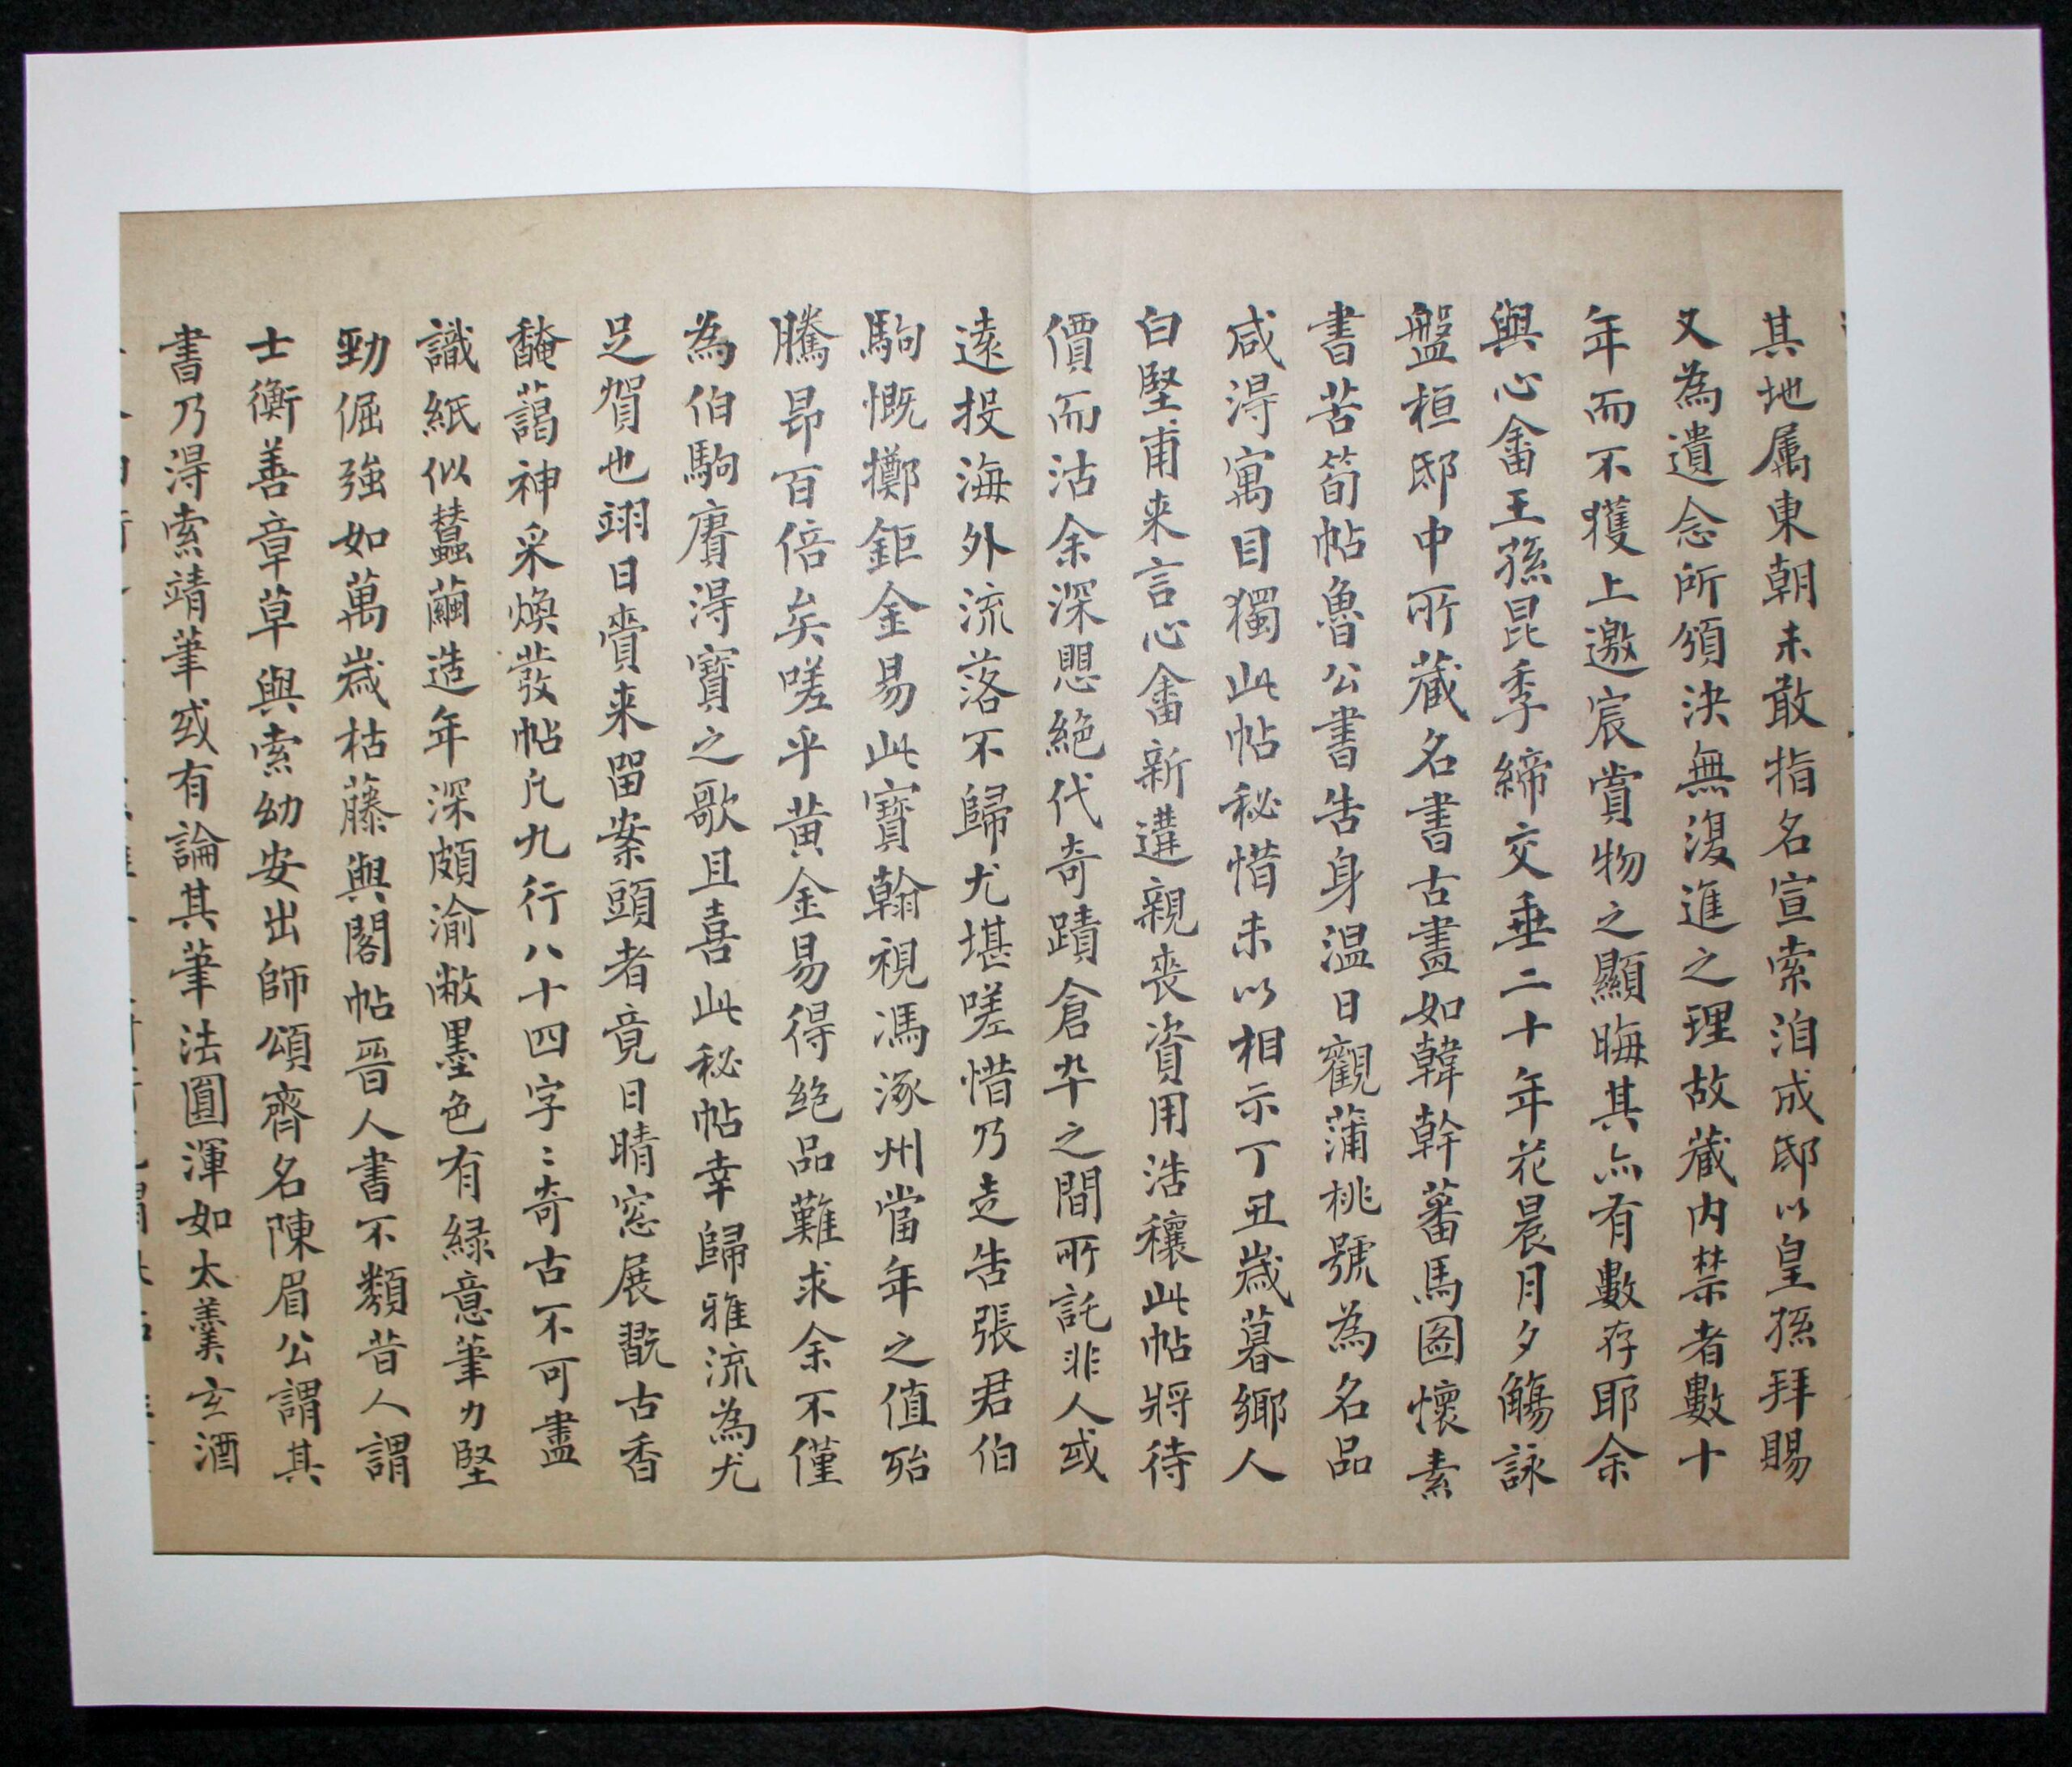 其地属東朝未敢指名宣索洎成邸以皇孫拜賜
又為遺念所頒決無復進之理故藏内禁者數十
年而不獲上邀宸賞物之顯晦其亦有數存耶余
與心畬王孫昆季締交垂二十年花晨月夕觴詠
盤桓邸中所藏名書古畫如韓幹蕃馬圖懷素
書苦筍帖魯公書告身温日觀蒲桃號為名品
咸得寓目獨此帖秘惜未以相示丁丑歲暮鄉人
白堅甫来言心畬新遘親喪資用浩穰此帖將待
價而沽余深愳絶代奇蹟倉卒之間所託非人或
遠投海外流落不歸尤堪嗟惜乃走告張君伯
駒慨擲鉅金易此寶翰視馮涿州當年之值殆
騰昂百倍矣嗟乎黄金易得絶品難求余不僅
為伯駒賡得寶之歌且喜此秘帖幸歸雅流為尤
足賀也翊日賫来留案頭者竟日晴窓展翫古香
馣藹神采煥發帖凡九行八十四字〻奇古不可盡
識紙似蠶繭造年深頗渝敝墨色有緑意筆力堅
勁倔強如萬歲枯藤與閣帖晉人書不類昔人謂
士衡善章草與索幼安出師頌齊名陳眉公謂其
書乃得索靖筆或有論其筆法圓渾如太羹玄酒